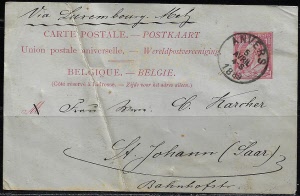 Via Luxembourg-Metz
CARTE POSTALE. – POSTKAART
Union postale universelle. – Wereldpostvereeniging.
BELGIQUE. – BELGIE.
(Côté réservé à l'adresse. – Zijde voor het adres alleen.)
ANVERS
Frau Wwe. C. Karcher
St. Johann (Saar)
Bahnhofstr